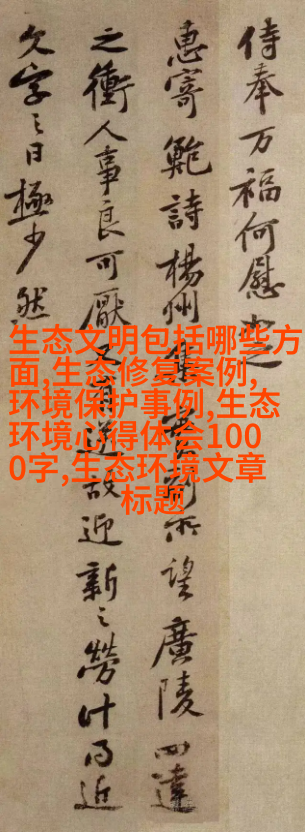 侍奉万福何慰如之
惠寄鲍詩楊州集
望廣陵四達
之衝人事良可厭又有送故迎新之勞计日近
欠字之日極少然
生态文明包括哪些方
面,生态修复案例,
环境保护事例,生态
环境心得体会100
0字,生态环境文章
标题